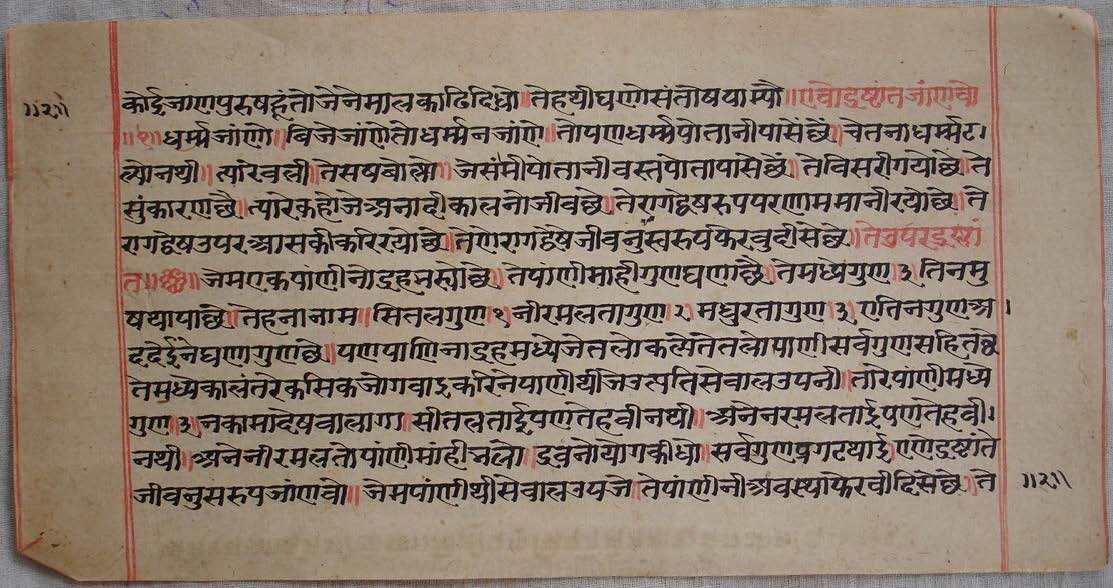 कोई जांण पुरुष हूंतो जेने मालका ढिदिधो ॥ तेहथी घणो संतोष पाम्यौ ॥ एवो दृष्टांत जांणवो
॥१॥ धर्म्म जांणे ॥ बिजे जांणे तो धर्म्म न जांणे ॥ तो पण धर्म्म पोतानी पासें छै ॥ चेतना धर्म्म ट।
ल्यो नथी ॥ त्यारे वली ॥ ते सष बोल्यो ॥ जे संमी पोतानी वस्तं पोता पासे छै ॥ ते विसरी गयो छै ॥ ते
सुं कारण छै ॥ त्यारे कहो जे अनादी कालनो जीव छे ॥ ते राग द्वेष रुप परणाम मानी रयो छे ॥ ते
राग द्वेष उपर आसकी करि रयो छे ॥ तेणे राग द्वेष जीवनुं स्वरुपं फेरवु दीसे छे ॥ ते उपर द्रष्टां
त ॥ जेम एक पाणीनो द्रह भर्यो छै ॥ ते पांणी माही गुण घणा छै ॥ ते मध्ये गुण ३ तिन मु
ष थापा छै ॥ तेहना नाम ॥ सितल गुण १ नीरमलता गुण २ मधुरता गुण ३ ए तिन गुण अ।
द देईने घणा गुण छे ॥ पण पाणिना द्रह मध्ये जेतलो कल्पे तेतलो पाणी सर्व गुण सहित छै
ते मध्य कालंतरे कसिक जोगवाइ करिने पाणी थी जे उत्पति सेवाल उपनी ॥ तारे पांणी मध्य
गुण ३ नकामा देषवा लागा ॥ सीतलताई पण तेहवी नथी ॥ अने नरमलताई पण तेहवी।
नथी ॥ अने नीरमलतो पांणी मांही चलो ॥ द्रवनो योग कीधो ॥ सर्व गुण प्रगट थाई ॥ एणे द्रष्टांते
जीवनु सरुप जांणवो ॥ जेम पांणी थी सेवाल उपजे ॥ ते पांणीनी अवस्था फेरवी दिसे छे ॥ ते
॥२॥
॥२॥